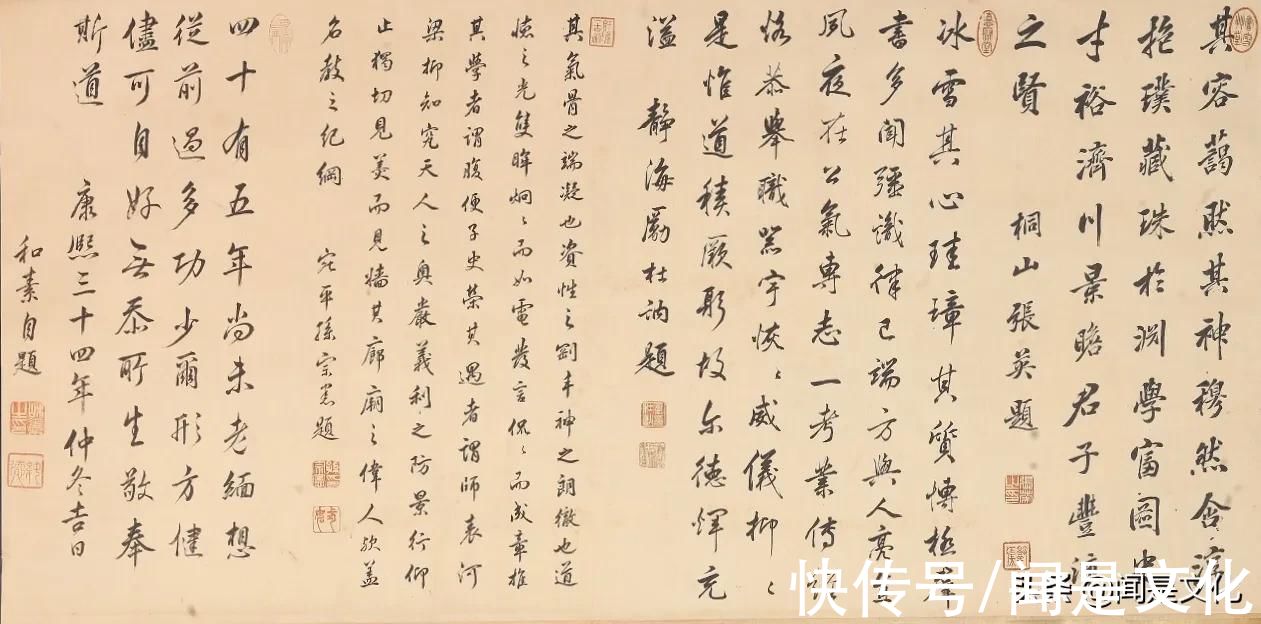 其容藹然其神穆然含
抱璞藏珠於淵學富圖史
才裕濟川景瞻君子豐
之賢 桐山張英題
冰雪其心珪璋其質博極群
書多聞彊識律己端方與人亮直
夙夜在公氣專志一考業傳
恪恭舉職器宇恢〻威儀抑〻
是惟道積厥躬故尔德煇充
溢 靜海勵杜訥題
其氣骨之端凝也資性之剛丰神之朗徹也道
德之光雙眸炯〻而如電發言侃〻而成章推
其學者謂腹便子史榮其遇者謂師表河
梁抑知究天人之奧嚴義利之防景行仰
止獨切見羹而見牆其廊廟之偉人欤蓋
名教之紀綱 宛平孫宗題
四十有五年尚未老緬想
從前過多功少爾形方健
儘可自好無忝所生敬奉
斯道 康熙三十四年仲冬吉日
和素自題
快传号/闻是文化
头条 @闻是文化